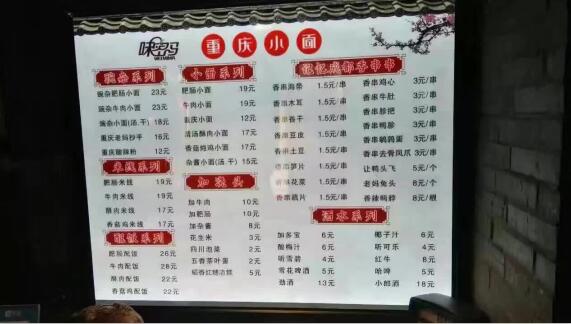 味蜀吗
重庆小面
豌杂系列
豌杂肥肠小面 23元
豌杂牛肉小面 23元
豌杂小面(汤.干) 18元
重庆老妈抄手 16元
重庆酸辣粉 12元
米线系列
肥肠米线 19元
牛肉米线 19元
酥肉米线 17元
香菇鸡米线 17元
配饭系列
肥肠配饭 26元
牛肉配饭 28元
酥肉配饭 22元
香菇鸡配饭 22元
小面系列
肥肠小面 19元
牛肉小面 19元
重庆小面 12元
清汤酥肉小面 17元
香菇炖鸡小面 17元
杂酱小面(汤.干) 15元
加浇头
加牛肉 10元
加肥肠 10元
加杂酱 8元
花生米 3元
四川泡菜 2元
五香茶叶蛋 2元
5元
记忆成都香串串
香串海带 1.5元/串
香串木耳 1.5元/串
香串香干 1.5元/串
香串豆皮 1.5元/串
香串土豆 1.5元/串
香串笋片 1.5元/串
香串花菜 1.5元/串
香串藕片 1.5元/串
香串鸡心 3元/串
香串牛肚 3元/串
香串胗把 3元/串
香串鸭胗 3元/串
香串鹌鹑蛋 3元/串
香串去骨凤爪 3元/串
让鸭头飞 5元/个
老妈兔头 8元/个
香辣鸭脖 8元/根
酒水系列
加多宝 6元
酸梅汁 6元
听雪碧 4元
雪花啤酒 5元
劲酒 13元
椰子汁 6元
听可乐 4元
红牛 8元
哈啤 5元
小郎酒 18元